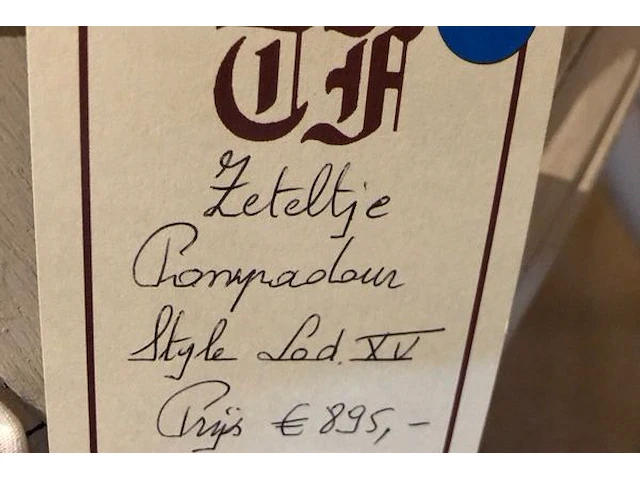 TF
Zeteltje
Pompadour
Style Lod. XV
Prijs € 895,-